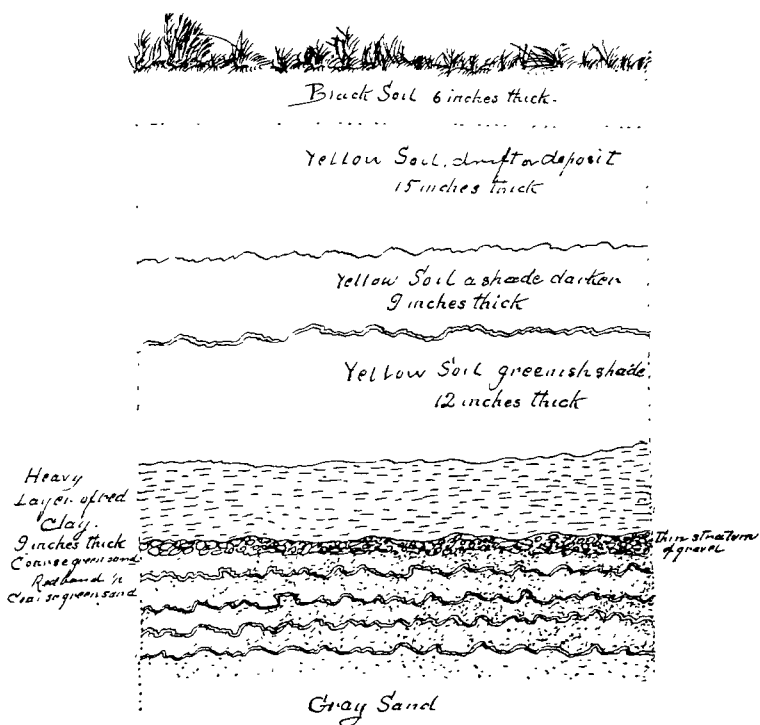 Black Soil 6 inches thick.
Yellow Soil, drift or deposit
15 inches thick
Yellow Soil a shade darker
9 inches thick
Yellow Soil greenish shade.
12 inches thick
Heavy
Layer of red
Clay.
9 inches thick
Coarse green sand
Red band
Coarse green sand
thin stratum
of gravel
Gray Sand